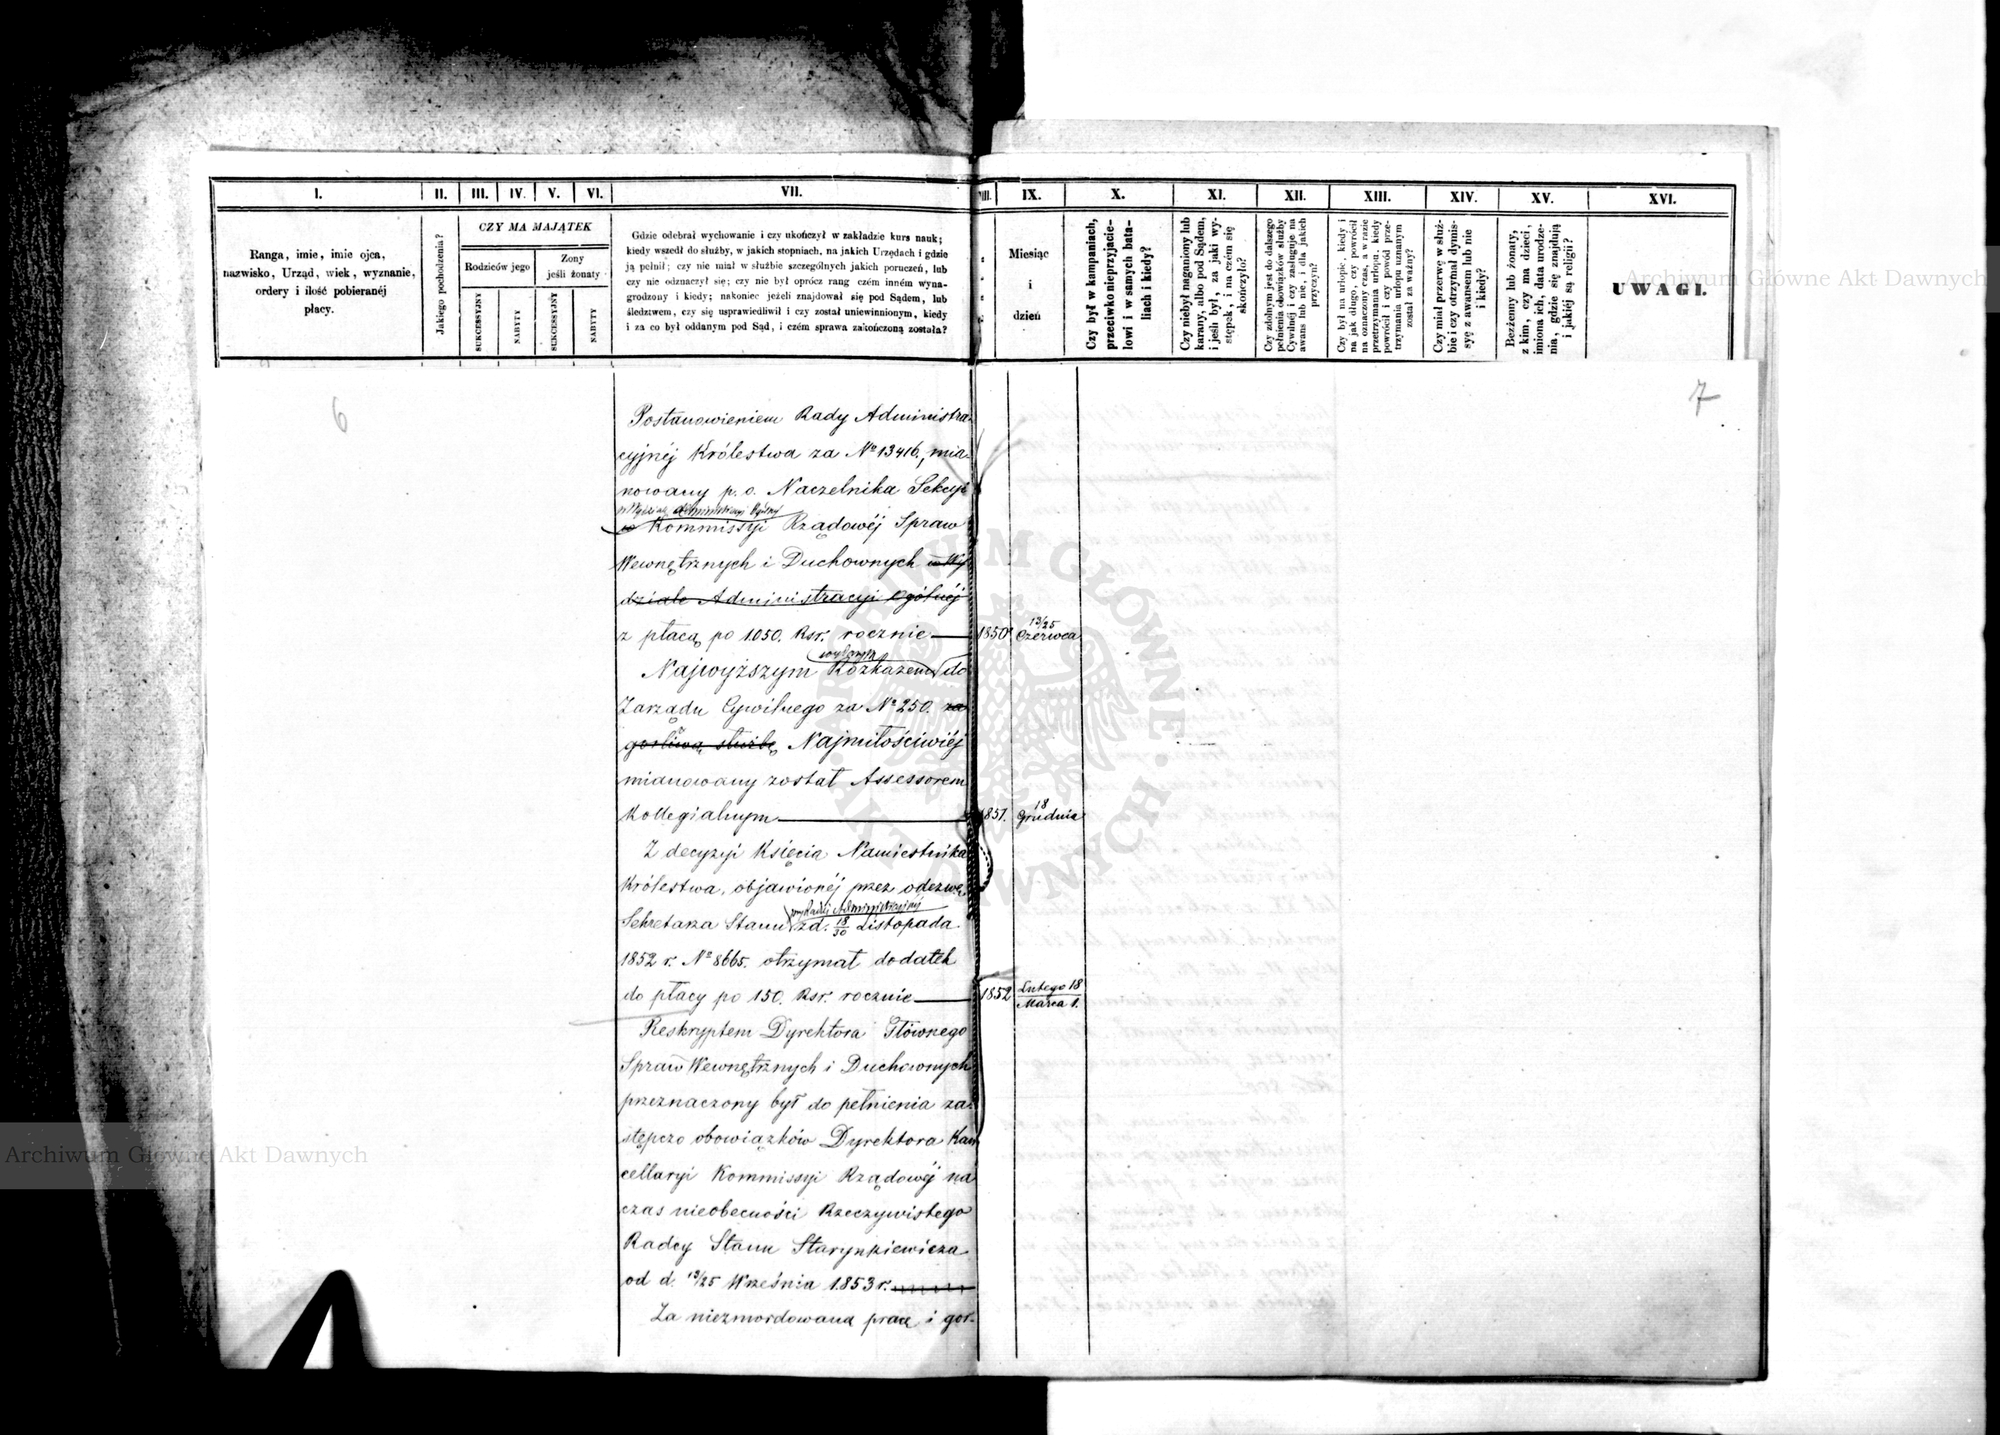 I. II. III. IV. V. VI. VII. VIII. IX. X. XI. XII. XIII. XIV. XV. XVI.
Ranga, imie, imie ojca,
nazwisko, Urząd, wiek, wyznanie,
ordery i ilość pobieranéj
płacy.
Jakiego pochodzenia?
CZY MA MAJĄTEK
Rodziców jego
Żony
jeśli żonaty
SUKCESSYJNY
NABYTY
SUKCESSYJNY
NABYTY
Gdzie odebrał wychowanie i czy ukończył w zakładzie kurs nauk;
kiedy wszedł do służby, w jakich stopniach, na jakich Urzędach i gdzie
ją pełnił; czy nie miał w służbie szczególnych jakich poruczeń, lub
czy nie odznaczył się; czy nie był oprócz rang czém inném wyna-
grodzony i kiedy; nakoniec jeżeli znajdował się pod Sądem, lub
śledztwem, czy się usprawiedliwił i czy został uniewinnionym, kiedy
i za co był oddanym pod Sąd, i czém sprawa zakończoną została?
Miesiąc
i
dzień
Czy był w kampaniach,
przeciwko nieprzyjacie-
lowi i w samych bata-
liach i kiedy?
Czy niebył naganiony lub
karany, albo pod Sądem,
i jeśli był, za jaki wy-
stępek, i na czém się
skończyło?
Czy zdolnym jest do dalszego
pełnienia obowiązków służby
Cywilnéj i czy zasługuje na
awans lub nie, i dla jakich
przyczyn?
Czy był na urlopie, kiedy i
na jak długo, czy powrócił
na oznaczony czas, a w razie
przetrzymania urlopu, kiedy
powrócił i czy powód prze-
trzymania urlopu uznanym
został za ważny?
Czy miał przerwę w służ-
bie i czy otrzymał dymis-
syę z awansem lub nie
i kiedy?
Bezżenny lub żonaty,
z kim, czy ma dzieci,
imiona ich, data urodze-
nia, gdzie się znajdują
i jakiéj są religii?
UWAGI.
6
7
Postanowieniem Rady Administra-
cyjnéj Królestwa za No 13416, mia-
nowany p. o. Naczelnika Sekcyi
w Wydziale Administracyi Ogólnej
w Kommissyi Rządowéj Spraw
Wewnętrznych i Duchownych w Wy-
dziale Administracyi Ogólnéj
z płacą po 1050. Rsr. rocznie 1850 13/25 Czerwca
Najwyższym Rozkazem do
Zarządu Cywilnego za No 250. za
gorliwą służbę Najmiłościwiéj
mianowany został Assessorem
Kollegialnym 1851. 18 Grudnia
Z decyzyi Księcia Namiestnika
Królestwa, objawionéj przez odezwę
Sekretarza Stanu przy Radzie Administracyjnéj z d. 18/30 Listopada
1852 r. No 8665. otrzymał dodatek
do płacy po 150. Rsr. rocznie 1852 Lutego 18 / Marca 1.
Reskryptem Dyrektora Głównego
Spraw Wewnętrznych i Duchownych
przeznaczony był do pełnienia za-
stępczo obowiązków Dyrektora Kan-
cellaryi Kommissyi Rządowéj na
czas nieobecności Rzeczywistego
Radcy Stanu Starynkiewicza
od d. 13/25 Września 1853 r.
Za niezmordowaną pracę i gor-
ARCHIWUM GŁÓWNE AKT DAWNYCH
Archiwum Główne Akt Dawnych
Archiwum Główne Akt Dawnych